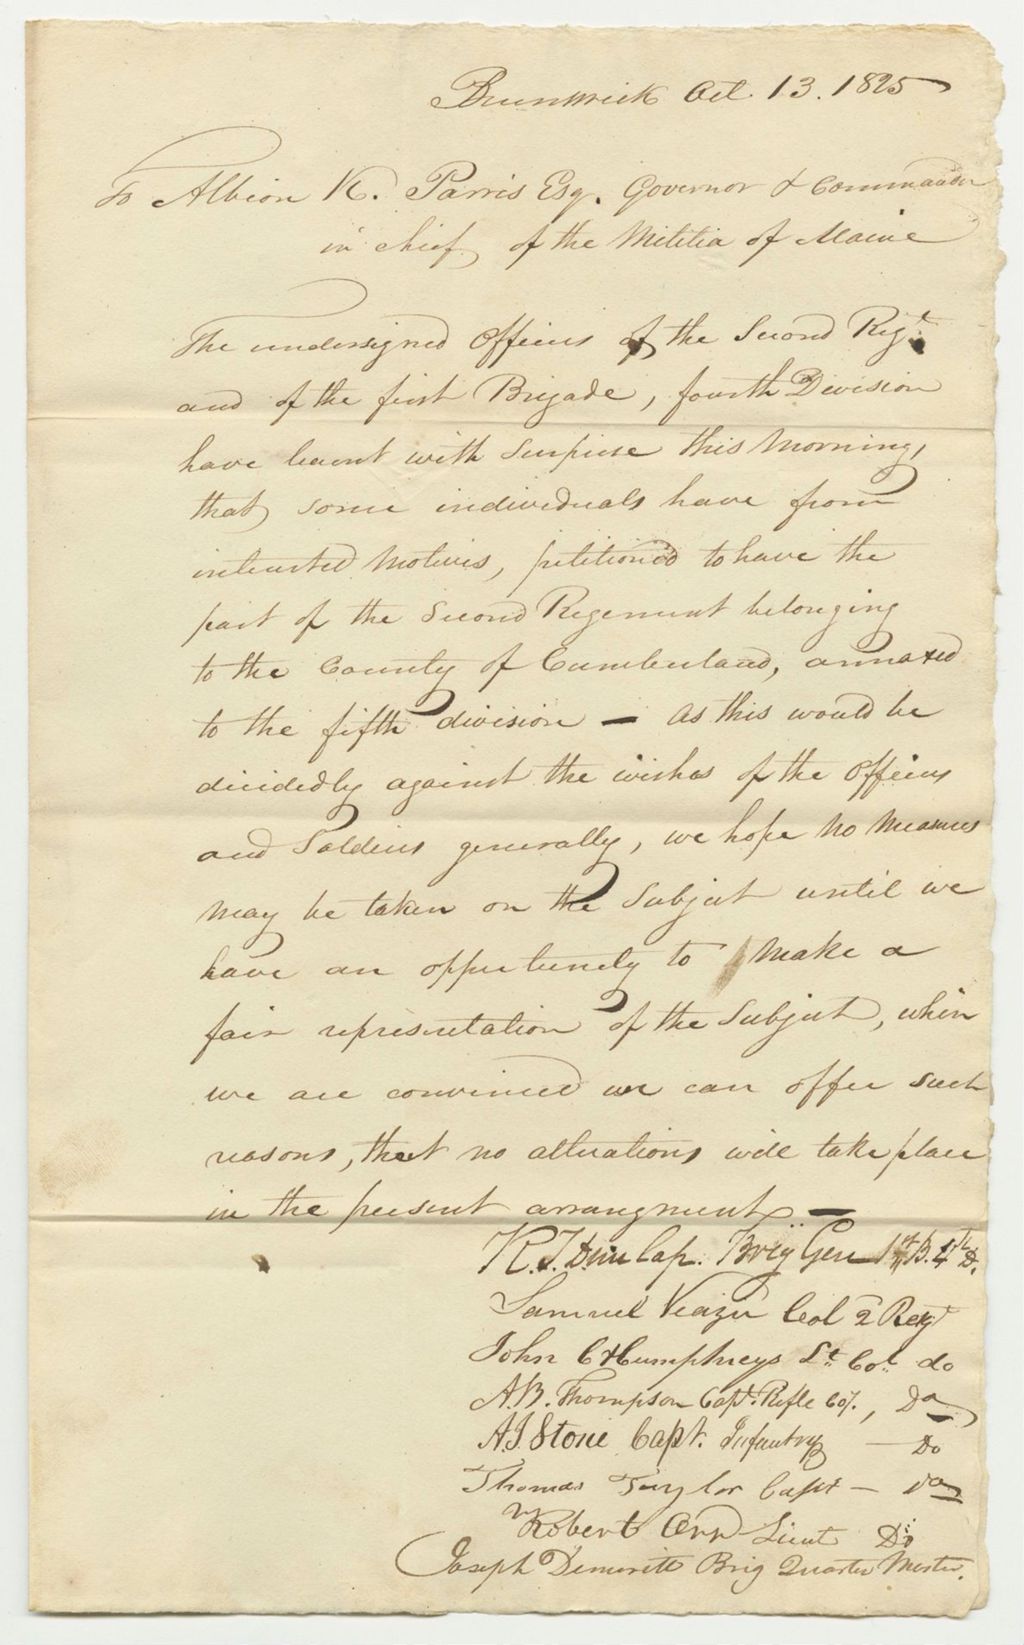 Brunswick Oct 13. 1825
To Albion K. Parris Esq. Governor & Commander
in chief of the Militia of Maine
The undersigned Officers of the Second Regt
and of the first Brigade, fourth Division
have learnt with Surprise this Morning,
that some individuals have from
interested Motives, petition'd to have the
part of the Second Regement belonging
to the County of Cumberland, annexed
to the fifth division — As this would be
decidedly against the wishes of the Officers
and Soldiers generally, we hope No Measures
May be taken on the Subject until we
have an oppertunity to Make a
fair representation of the Subject, when
we are convinced we can offer such
reasons, that no alterations will take place
in the present arrangment —
R. T. Dunlap. Brig Gen 1st B. 4th D.
Samuel Veazie Col 2 Regt
John C Humphreys Lt. Col. do
A.B. Thompson Capt. Rifle Coy., Do
A.J. Stone Capt. Infantry — Do
Thomas Taylor Capt — Do
Robert Orr Lieut Do
Joseph Demeritt Brig Quarter Master.